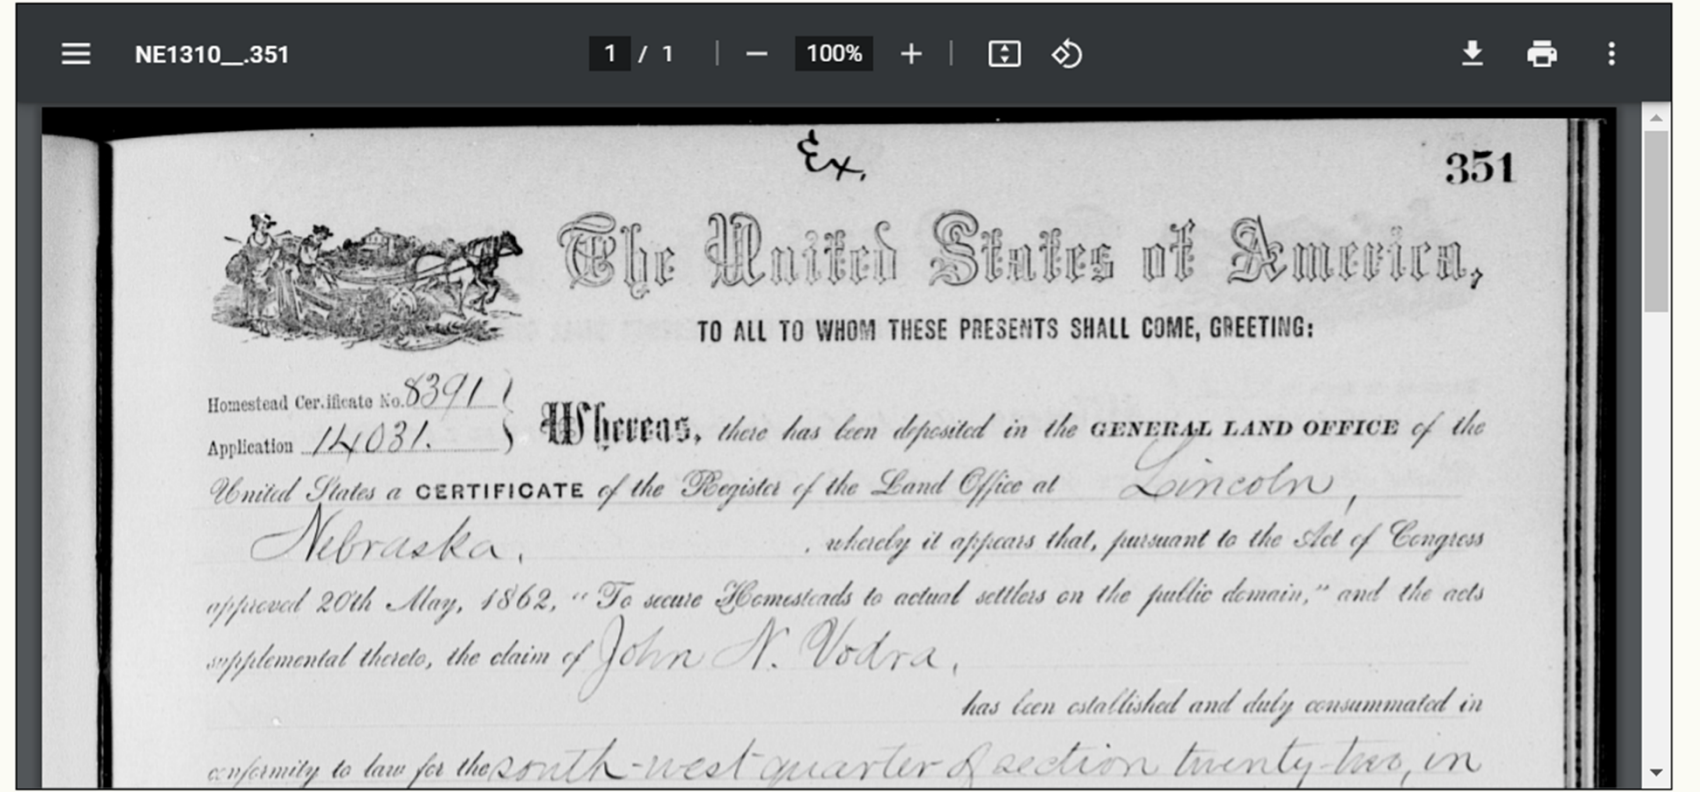 NE1310__.351
1 / 1
100%
Ex.
351
The United States of America,
TO ALL TO WHOM THESE PRESENTS SHALL COME, GREETING:
Homestead Certificate No. 8391
Application 14031.
Whereas, there has been deposited in the GENERAL LAND OFFICE of the
United States a CERTIFICATE of the Register of the Land Office at Lincoln,
Nebraska, , whereby it appears that, pursuant to the Act of Congress
approved 20th May, 1862, "To secure Homesteads to actual settlers on the public domain," and the acts
supplemental thereto, the claim of John N. Vodra,
has been established and duly consummated in
conformity to law for the south-west quarter of section twenty-two, in